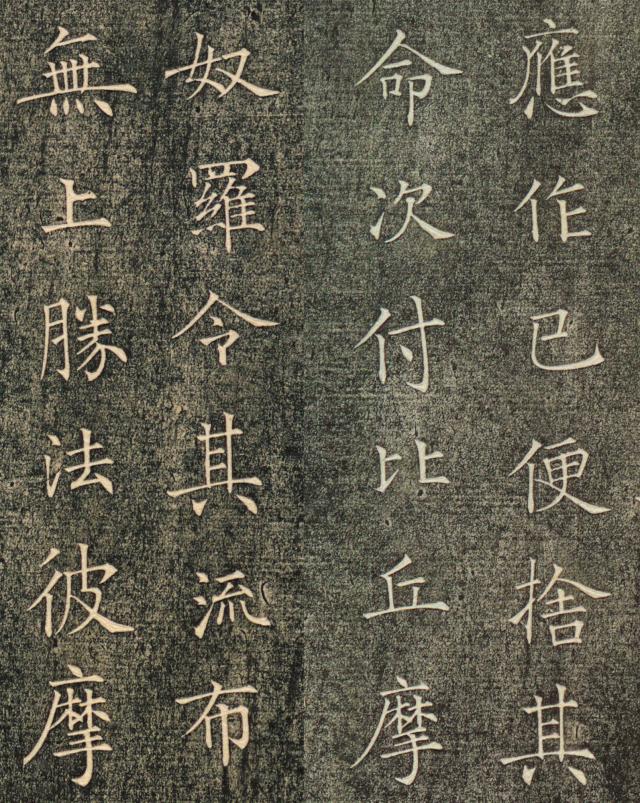 應作已便捨其
命次付比丘摩
奴羅令其流布
無上勝法彼摩